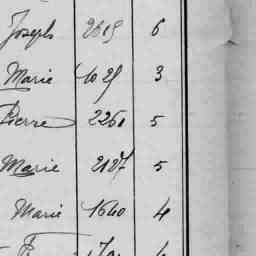 Joseph 2615 6
Marie 1025 3
Pierre 2260 5
Marie 2127 5
Marie 1640 4